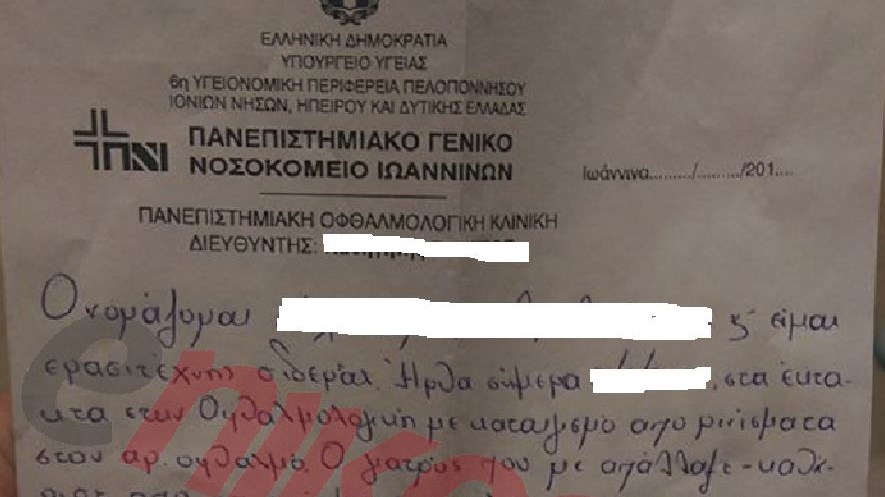 ΕΛΛΗΝΙΚΗ ΔΗΜΟΚΡΑΤΙΑ
ΥΠΟΥΡΓΕΙΟ ΥΓΕΙΑΣ
6η ΥΓΕΙΟΝΟΜΙΚΗ ΠΕΡΙΦΕΡΕΙΑ ΠΕΛΟΠΟΝΝΗΣΟΥ
ΙΟΝΙΩΝ ΝΗΣΩΝ, ΗΠΕΙΡΟΥ ΚΑΙ ΔΥΤΙΚΗΣ ΕΛΛΑΔΑΣ
ΠΓΝΙ ΠΑΝΕΠΙΣΤΗΜΙΑΚΟ ΓΕΝΙΚΟ
ΝΟΣΟΚΟΜΕΙΟ ΙΩΑΝΝΙΝΩΝ
Ιωάννινα........./........./201....
ΠΑΝΕΠΙΣΤΗΜΙΑΚΗ ΟΦΘΑΛΜΟΛΟΓΙΚΗ ΚΛΙΝΙΚΗ
ΔΙΕΥΘΥΝΤΗΣ:
Ονομάζομαι ξ' είμαι
ερασιτέχνης σιδεράς. Ήρθα σήμερα , στα έκτα-
κτα στην Οφθαλμολογική με καταιγισμό απο ρινίσματα
στον αρ. οφθαλμό. Ο γιατρός που με απάλλαξε - καθη-